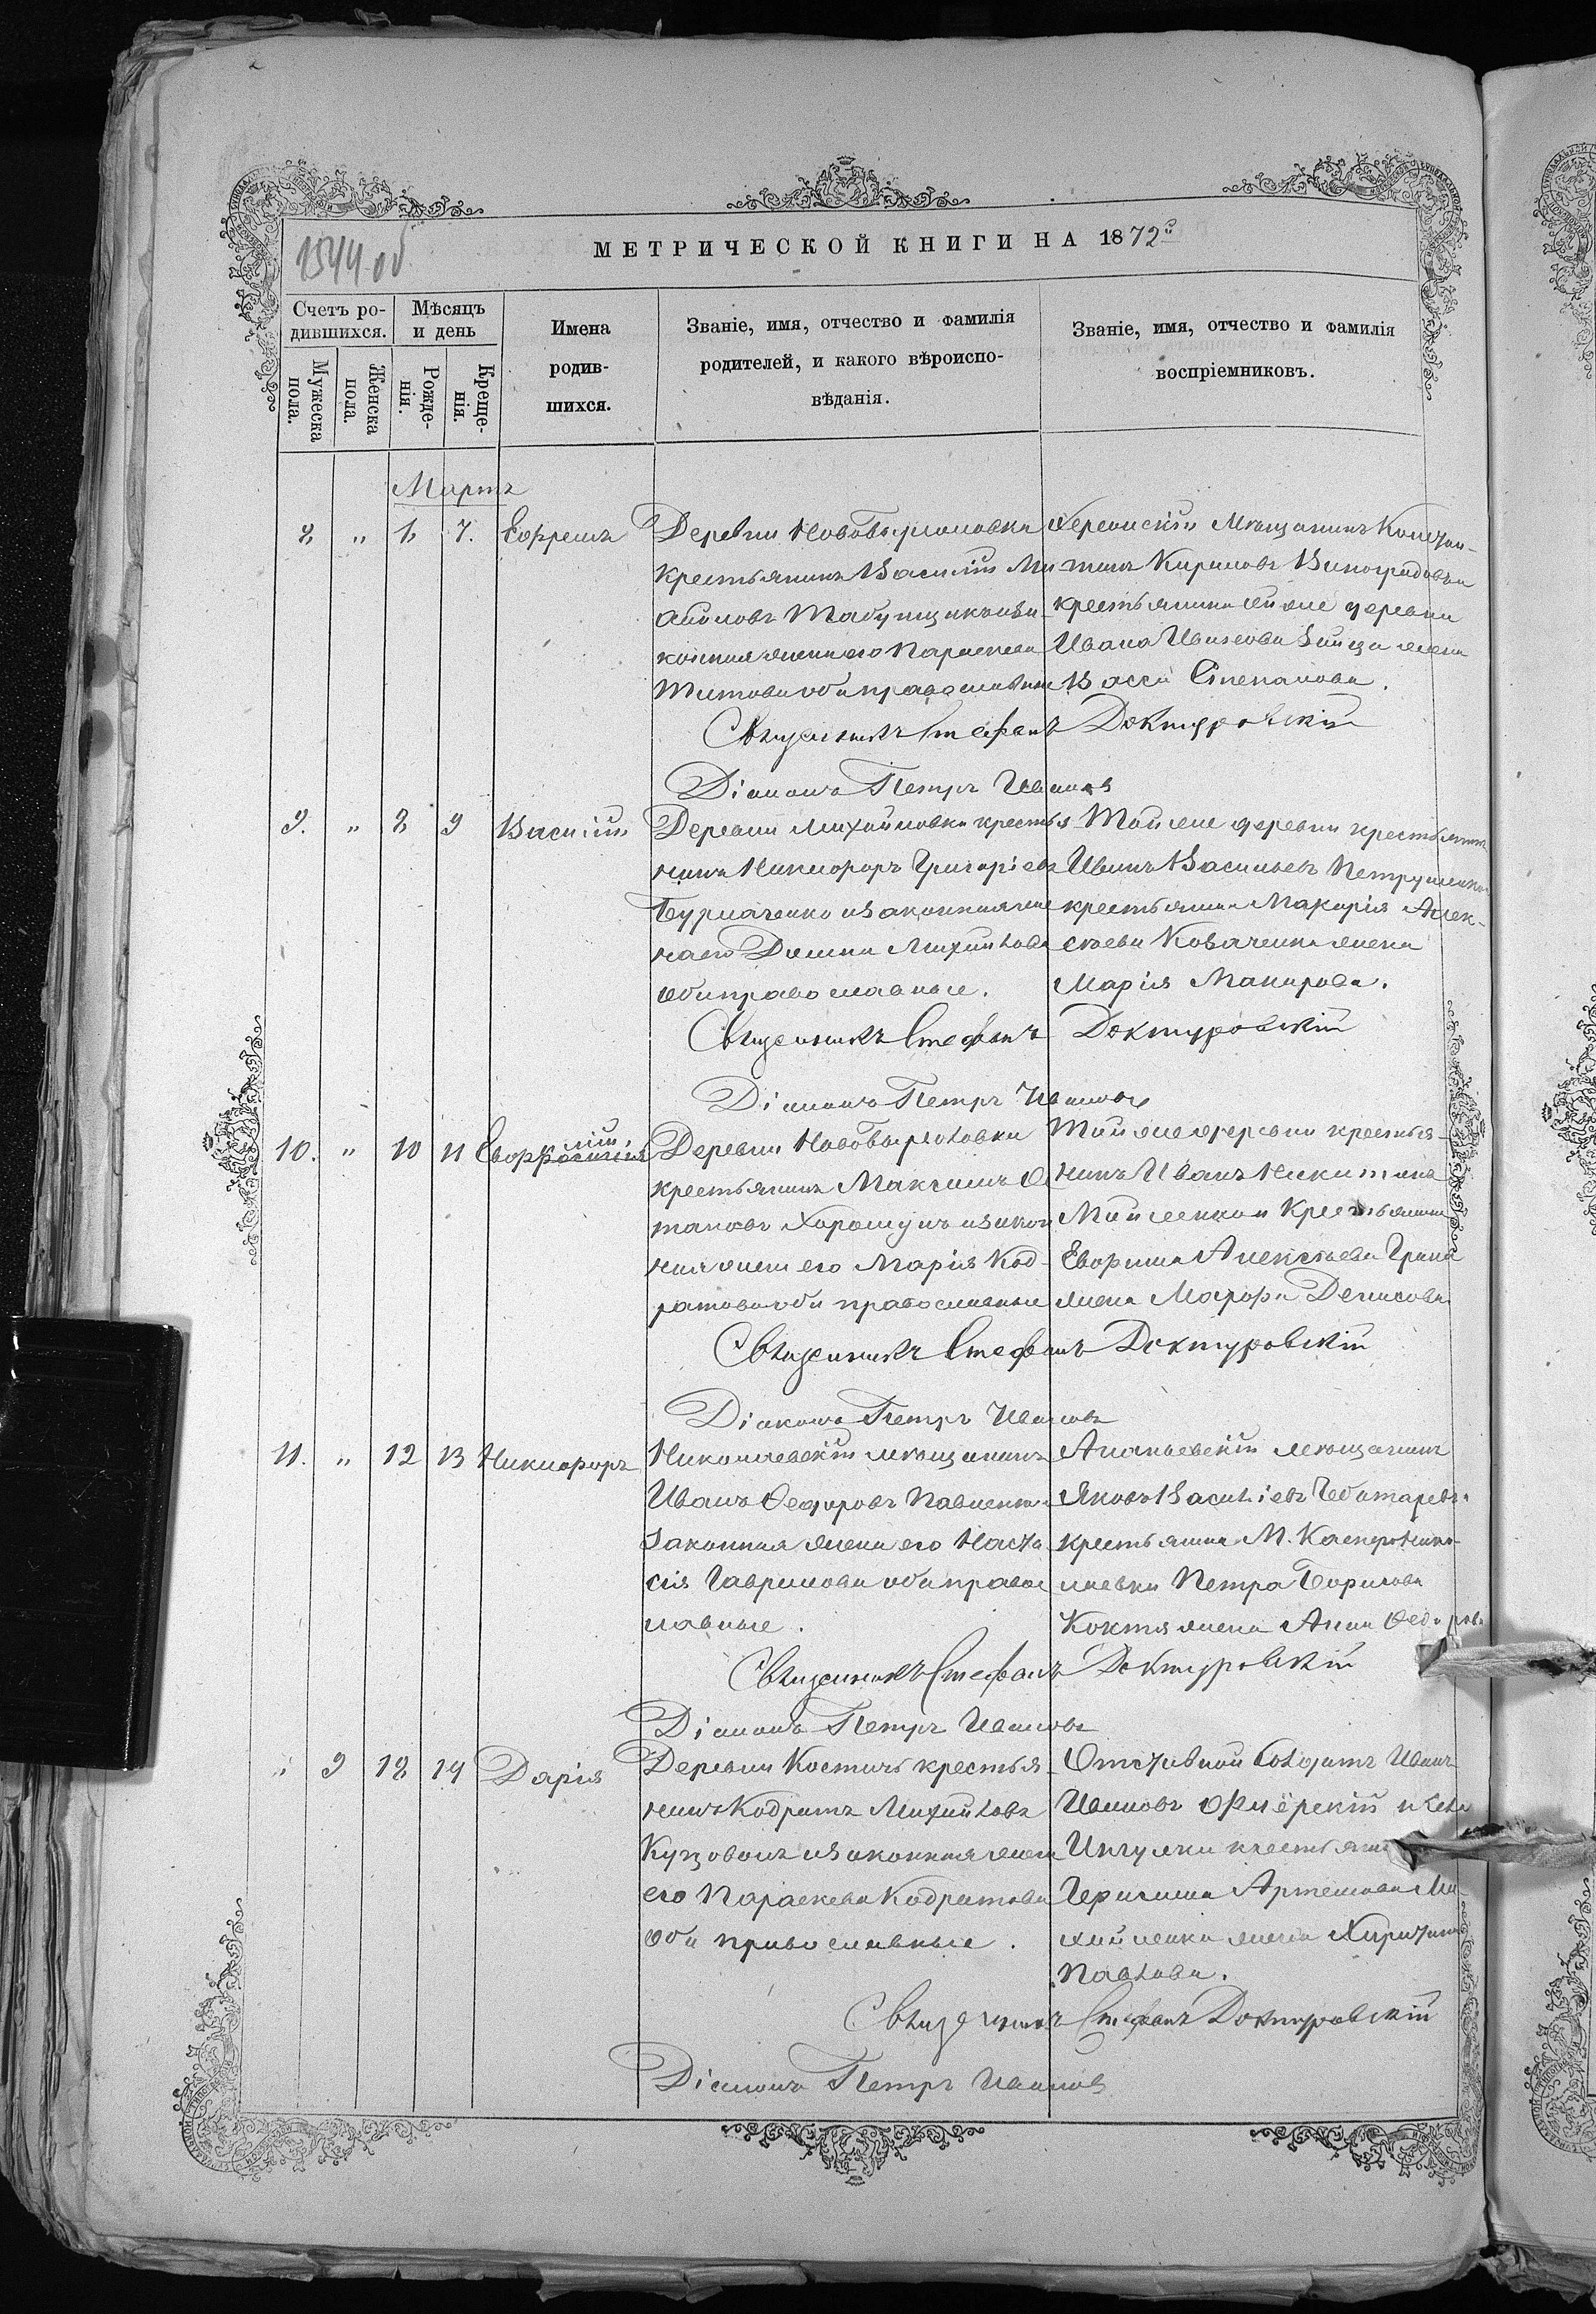 1544 об
МЕТРИЧЕСКОЙ КНИГИ НА 1872г.
Счетъ ро-
дившихся.
Мужеска
пола.
Женска
пола.
Мѣсяцъ
и день
Рожде-
нія.
Креще-
нія.
Имена
родив-
шихся.
Званіе, имя, отчество и фамилія
родителей, и какого вѣроиспо-
вѣданія.
Званіе, имя, отчество и фамилія
воспріемниковъ.
Мартъ
8 " 1 7. Ефремъ
Деревни
крестьянинъ Василій Ми
хайловъ
конная жена его Параскева
Титова оба православные
Херсонскій Мѣщанинъ Констан-
тинъ Кириловъ Виноградовъ и
крестьянина той же деревни
Ивана Зайца жена
Васса Степанова.
Священникъ Стефанъ Доктуровскій
Діаконъ Петръ Ивановъ
9. " 8 9 Василій
Деревни Михайловки крестья
нинъ Никифоръ Григоріевъ
Бурлаченко и законная же
на его Михайлова
оба православные.
Той же деревни крестьянинъ
Иванъ Васильевъ Петрушенко
крестьянина Макарія Алек-
сѣева Коваленка жена
Марія Макарова.
Священникъ Стефанъ Доктуровскій
Діаконъ Петръ Ивановъ
10. " 10 11
Деревни
крестьянинъ Максимъ О
таповъ Хорошунъ и закон
ная жена его Марія Код-
ратова оба православные
Той же деревни крестья-
нинъ Иванъ Никитинъ
Мойсеенко и Крестьянина
Алексѣева
жена Денисова
Священникъ Стефанъ Доктуровскій
Діаконъ Петръ Ивановъ
11. " 12 13 Никифоръ
Николаевскій мѣщанинъ
Иванъ Ѳедоровъ
законная жена его Наста
сія Гаврилова оба правос
лавные.
Ананьевскій мѣщанинъ
Яковъ Василіевъ Чеботаревъ и
крестьянина М. Касперо Нико-
лаевки Петра Борисова
Кокта жена Анна Ѳедорова
Священникъ Стефанъ Доктуровскій
Діаконъ Петръ Ивановъ
" 9 12 14 Дарія
Деревни Костичъ крестья-
нинъ Кодратъ Михайловъ
и законная жена
его Параскева Кодратова
оба православные.
Отставной Солдатъ Иванъ
Ивановъ и села
Ингулки крестьянина
Герасима Артемова Ми-
хайленка жена Харитина
Павлова.
Священникъ Стефанъ Доктуровскій
Діаконъ Петръ Ивановъ